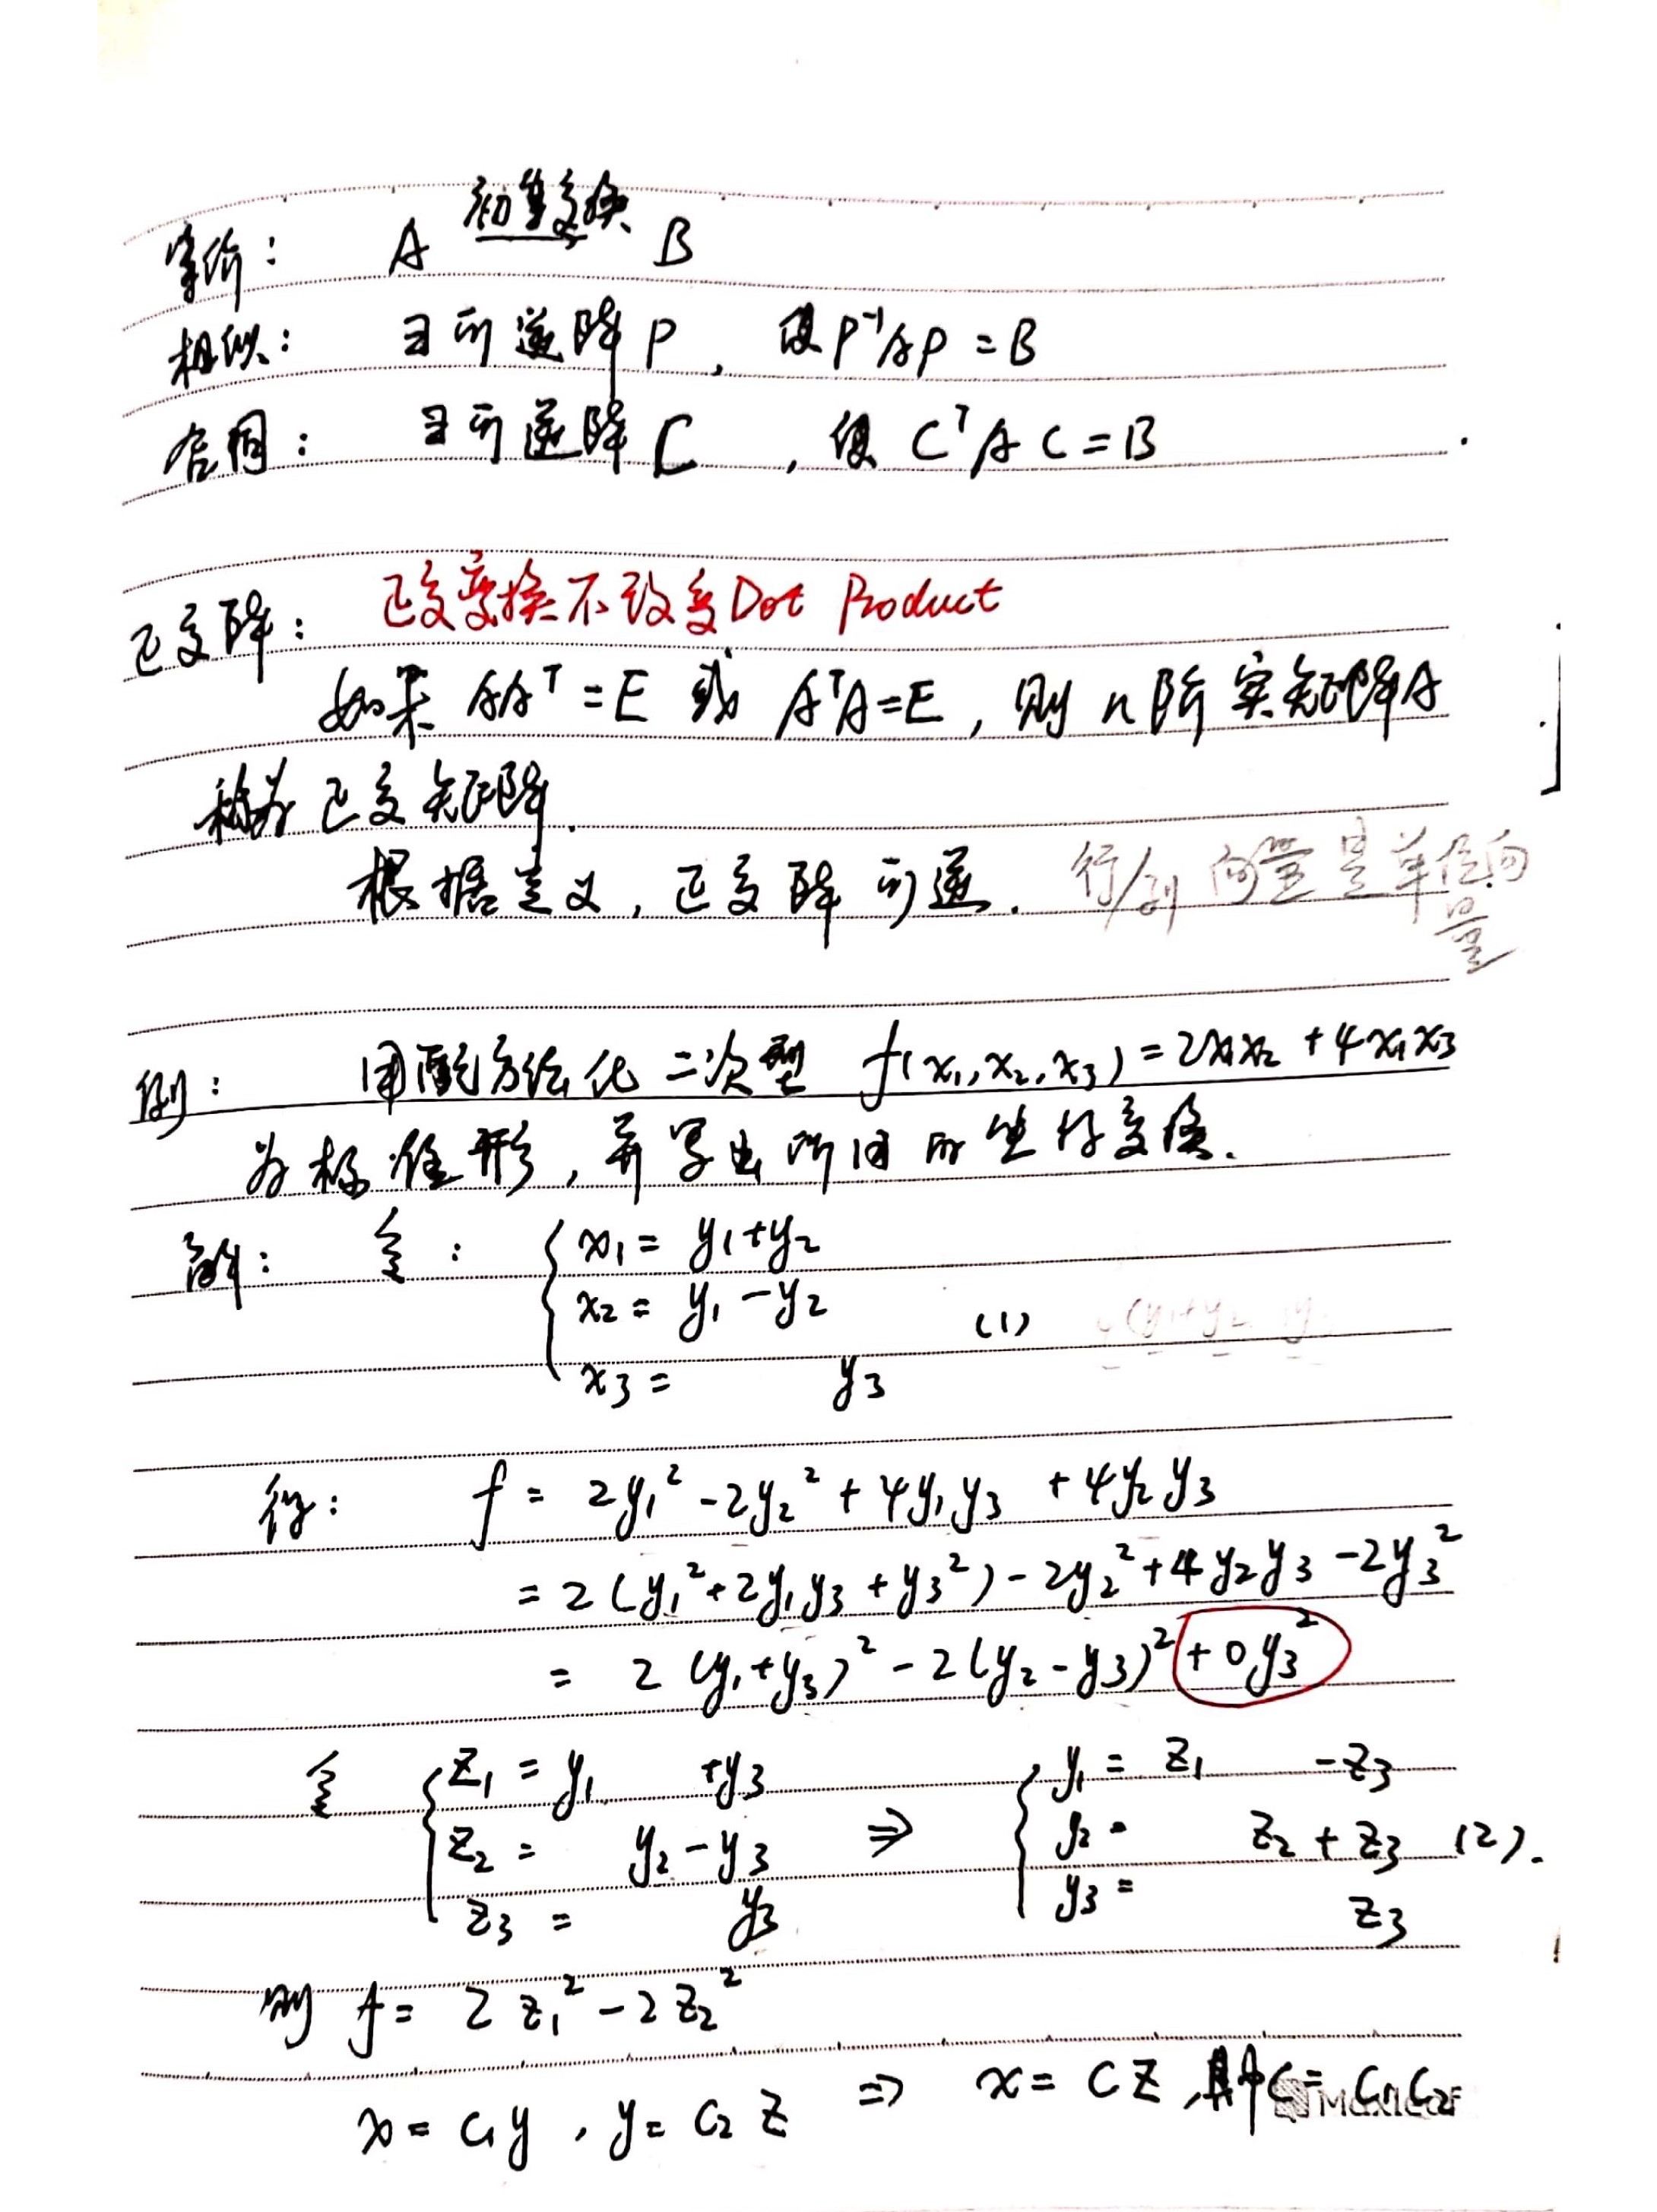 初等变换
等价： A B
相似： ∃可逆阵P，使P⁻¹AP=B
合同： ∃可逆阵C，使CᵀAC=B
正交变换不改变Dot Product
正交阵：
如果AAᵀ=E或AᵀA=E，则n阶实矩阵A
称为正交矩阵.
根据定义，正交阵可逆. 行/列向量是单位向
量
例： 用配方法化二次型 f(x₁,x₂,x₃)=2x₁x₂+4x₁x₃
为标准形，并写出所用的坐标变换.
解： 令： { x₁= y₁+y₂
x₂= y₁-y₂ (1)
x₃= y₃
得： f= 2y₁²-2y₂²+4y₁y₃+4y₂y₃
=2(y₁²+2y₁y₃+y₃²)-2y₂²+4y₂y₃-2y₃²
= 2(y₁+y₃)²-2(y₂-y₃)²+0y₃²
令 { z₁= y₁ +y₃ { y₁= z₁ -z₃
z₂= y₂-y₃ ⇒ y₂= z₂+z₃ (2).
z₃= y₃ y₃= z₃
则 f= 2z₁²-2z₂²
x=C₁y，y=C₂z ⇒ x=Cz，其中C=C₁C₂